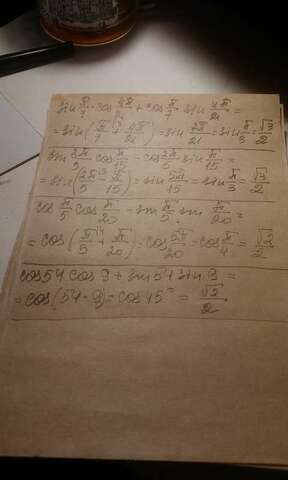 sin π/7 · cos 4π/21 + cos π/7 · sin 4π/21 =
= sin(π/7 + 4π/21) = sin 7π/21 = sin π/3 = √3/2
sin 2π/5 cos π/15 - cos 2π/5 sin π/15 =
= sin(2π/5 - π/15) = sin 5π/15 = sin π/3 = √3/2
cos π/5 cos π/20 - sin π/5 sin π/20 =
= cos(π/5 + π/20) = cos 5π/20 = cos π/4 = √2/2
cos 54 cos 9 + sin 54 sin 9 =
= cos(54 - 9) = cos 45° = √2/2